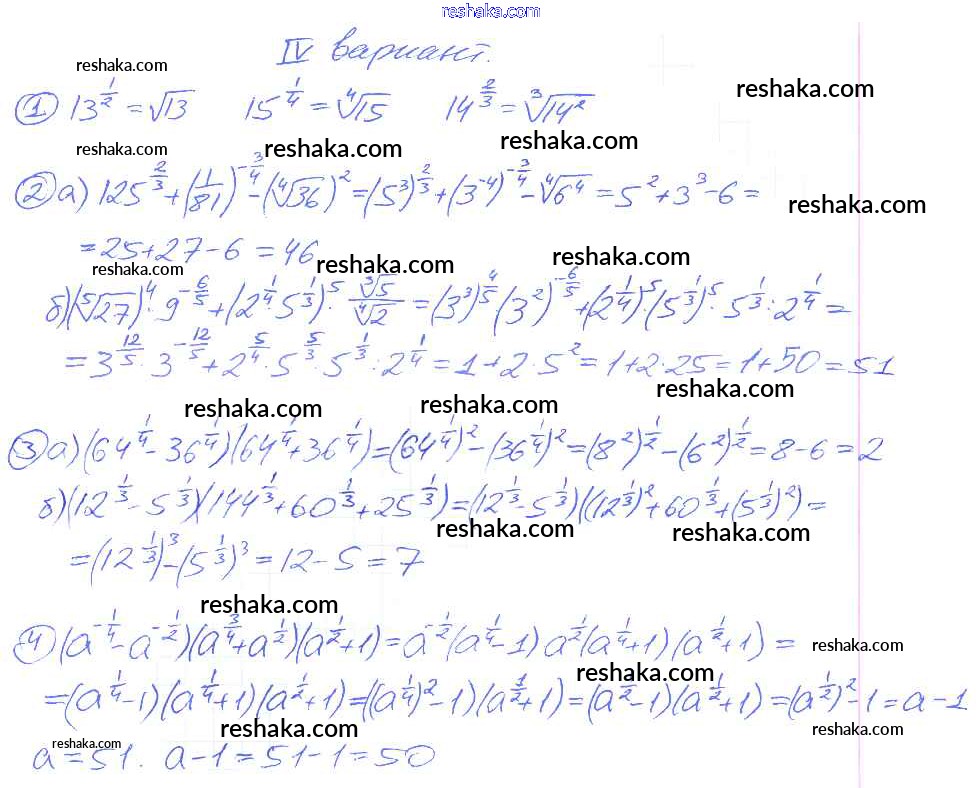 reshaka.com
IV вариант.
reshaka.com
① 13^{1/2} = √13 15^{1/4} = ⁴√15 14^{2/3} = ³√14² reshaka.com
reshaka.com reshaka.com reshaka.com
② а) 125^{2/3} + (1/81)^{-3/4} - (⁴√36)² = (5³)^{2/3} + (3^{-4})^{-3/4} - ⁴√6⁴ = 5² + 3³ - 6 =
reshaka.com
= 25 + 27 - 6 = 46
reshaka.com reshaka.com reshaka.com
б) (⁵√27)⁴ · 9^{-6/5} + (2^{1/4} · 5^{1/3})⁵ · ³√5/⁴√2 = (3³)^{4/5} (3²)^{-6/5} + (2^{1/4})⁵ · (5^{1/3})⁵ · 5^{1/3} : 2^{1/4} =
= 3^{12/5} · 3^{-12/5} + 2^{5/4} · 5^{5/3} · 5^{1/3} : 2^{1/4} = 1 + 2 · 5² = 1 + 2 · 25 = 1 + 50 = 51
reshaka.com reshaka.com reshaka.com
③ а) (64^{1/4} - 36^{1/4})(64^{1/4} + 36^{1/4}) = (64^{1/4})² - (36^{1/4})² = (8²)^{1/2} - (6²)^{1/2} = 8 - 6 = 2
б) (12^{1/3} - 5^{1/3})(144^{1/3} + 60^{1/3} + 25^{1/3}) = (12^{1/3} - 5^{1/3})((12^{1/3})² + 60^{1/3} + (5^{1/3})²) =
reshaka.com reshaka.com
= (12^{1/3})³ - (5^{1/3})³ = 12 - 5 = 7
reshaka.com
④ (a^{-1/4} - a^{-1/2})(a^{3/4} + a^{1/2})(a^{1/2} + 1) = a^{-1/2}(a^{1/4} - 1) a^{1/2}(a^{1/4} + 1)(a^{1/2} + 1) =
reshaka.com reshaka.com
= (a^{1/4} - 1)(a^{1/4} + 1)(a^{1/2} + 1) = ((a^{1/4})² - 1)(a^{1/2} + 1) = (a^{1/2} - 1)(a^{1/2} + 1) = (a^{1/2})² - 1 = a - 1
reshaka.com reshaka.com reshaka.com
a = 51. a - 1 = 51 - 1 = 50